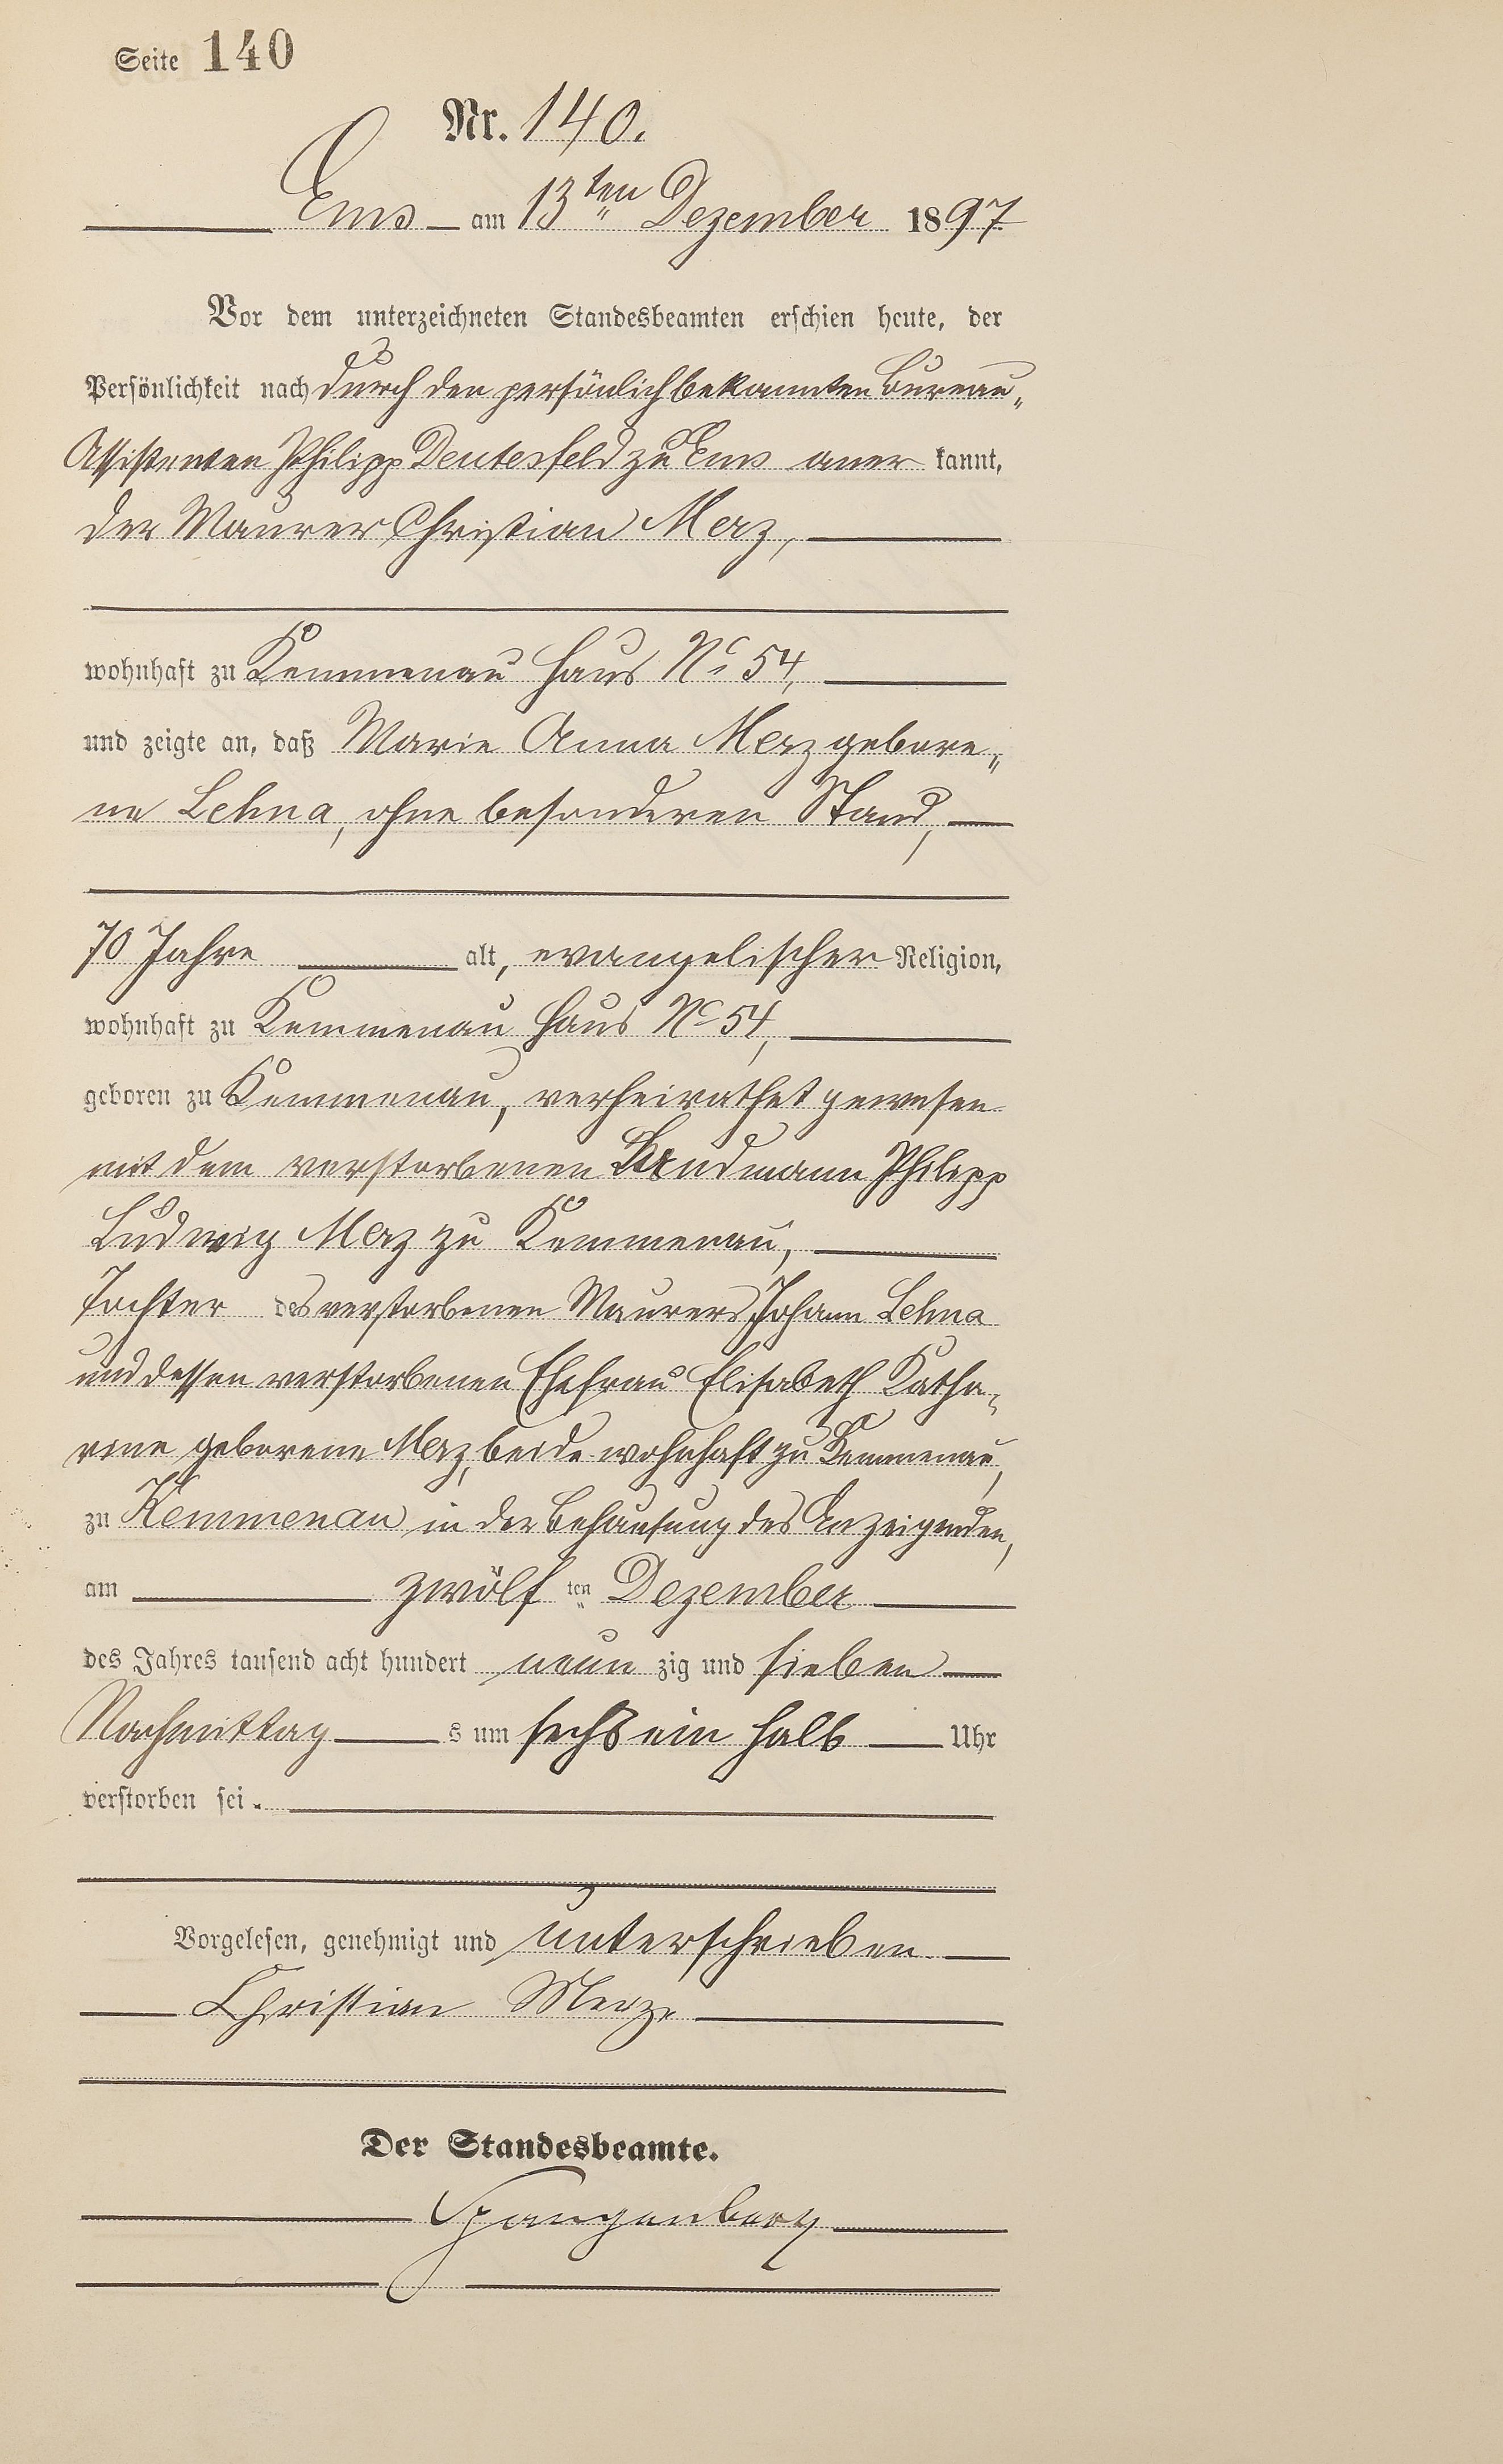 Seite 140
Nr. 140.
Ems am 13ten Dezember 1897
Vor dem unterzeichneten Standesbeamten erschien heute, der
Persönlichkeit nach durch den persönlich bekannten Bureau-
Assistenten Philipp Deutesfeld zu Ems aner kannt,
der Maurer Christian Merz,
wohnhaft zu Kemmenau Haus No 54,
und zeigte an, daß Marie Anna Merz gebore-
ne Lehna, ohne besonderen Stand,
70 Jahre alt, evangelischer Religion,
wohnhaft zu Kemmenau Haus No 54,
geboren zu Kemmenau, verheirathet gewesen
mit dem verstorbenen Landmann Philipp
Ludwig Merz zu Kemmenau,
Tochter des verstorbenen Maurers Johann Lehna
und dessen verstorbenen Ehefrau Elisabeth Katha-
rine geborene Merz, beide wohnhaft zu Kemmenau,
zu Kemmenau in der Behausung des Anzeigenden,
am zwölf ten Dezember
des Jahres tausend acht hundert neun zig und sieben
Nachmittag s um sechs ein halb Uhr
verstorben sei.
Vorgelesen, genehmigt und unterschrieben
Christian Merz
Der Standesbeamte.
Spangenberg